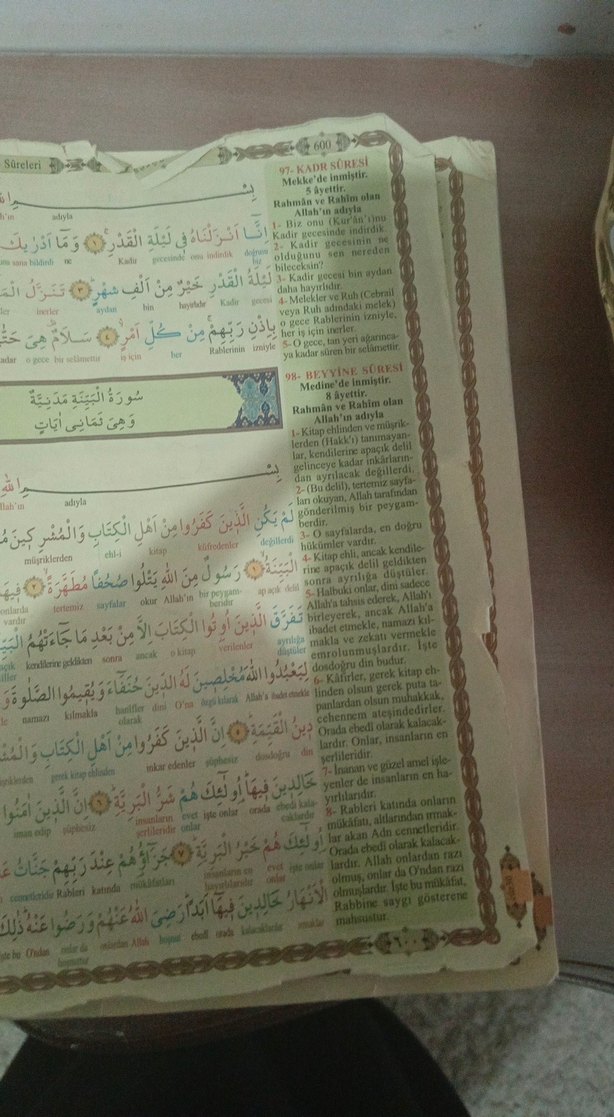 Sûreleri
600
97- KADR SÛRESİ
Mekke'de inmiştir.
5 âyettir.
Rahmân ve Rahîm olan
Allah'ın adıyla
1- Biz onu (Kur'ân'ı)nu
Kadir gecesinde indirdik.
2- Kadir gecesinin ne
olduğunu sen nereden
bileceksin?
3- Kadir gecesi bin aydan
daha hayırlıdır.
4- Melekler ve Ruh (Cebrail
veya Ruh adındaki melek)
o gece Rablerinin izniyle,
her iş için inerler.
5- O gece, tan yeri ağarınca-
ya kadar süren bir selâmettir.
98- BEYYİNE SÛRESİ
Medine'de inmiştir.
8 âyettir.
Rahmân ve Rahîm olan
Allah'ın adıyla
1- Kitap ehlinden ve müşrik-
lerden (Hakk'ı) tanımayan-
lar, kendilerine apaçık delil
gelinceye kadar inkârların-
dan ayrılacak değillerdi.
2- (Bu delil), tertemiz sayfa-
ları okuyan, Allah tarafından
gönderilmiş bir peygam-
berdir.
3- O sayfalarda, en doğru
hükümler vardır.
4- Kitap ehli, ancak kendile-
rine apaçık delil geldikten
sonra ayrılığa düştüler.
5- Halbuki onlar, dini sadece
Allah'a tahsis ederek, Allah'ı
birleyerek, ancak Allah'a
ibadet etmekle, namazı kıl-
makla ve zekatı vermekle
emrolunmuşlardır. İşte
dosdoğru din budur.
6- Kâfirler, gerek kitap eh-
linden olsun gerek puta ta-
panlardan olsun muhakkak,
cehennem ateşindedirler.
Orada ebedî olarak kalacak-
lardır. Onlar, insanların en
şerlileridir.
7- İnanan ve güzel amel işle-
yenler de insanların en ha-
yırlılarıdır.
8- Rableri katında onların
mükâfatı, altlarından ırmak-
lar akan Adn cennetleridir.
Orada ebedî olarak kalacak-
lardır. Allah onlardan razı
olmuş, onlar da O'ndan razı
olmuşlardır. İşte bu mükâfat,
Rabbine saygı gösterene
mahsustur.
adıyla
اِنَّٓا اَنْزَلْنَاهُ فٖى لَيْلَةِ الْقَدْرِ ١ وَمَٓا اَدْرٰيكَ
Kadir gecesinde onu indirdik doğrusu biz
لَيْلَةُ الْقَدْرِ خَيْرٌ مِنْ اَلْفِ شَهْرٍ ٣ تَنَزَّلُ
inerler aydan bin hayırlıdır Kadir gecesi
بِاِذْنِ رَبِّهِمْ مِنْ كُلِّ اَمْرٍ ٤ سَلَامٌ هِىَ
o gece bir selâmettir iş için her Rablerinin izniyle
سُورَةُ الْبَيِّنَةِ مَدَنِيَّةٌ
وَهِىَ ثَمَانِى اٰيَاتٍ
adıyla
لَمْ يَكُنِ الَّذٖينَ كَفَرُوا مِنْ اَهْلِ الْكِتَابِ وَالْمُشْرِكٖينَ
müşriklerden ehl-i kitap küfredenler değillerdi
الْبَيِّنَةُ ١ رَسُولٌ مِنَ اللّٰهِ يَتْلُوا صُحُفًا مُطَهَّرَةً ٢ فٖيهَا
onlarda vardır tertemiz sayfalar okur Allah'ın bir peygamberidir apaçık delil
تَفَرَّقَ الَّذٖينَ اُوتُوا الْكِتَابَ اِلَّا مِنْ بَعْدِ مَا جَٓاءَتْهُمُ
kendilerine geldikten sonra ancak o kitap verilenler ayrılığa düştüler
لِيَعْبُدُوا اللّٰهَ مُخْلِصٖينَ لَهُ الدّٖينَ حُنَفَٓاءَ وَيُقٖيمُوا الصَّلٰوةَ
namazı kılmakla hanifler olarak dini O'na özgü kılarak Allah'a ibadet etmekle
دٖينُ الْقَيِّمَةِ ٥ اِنَّ الَّذٖينَ كَفَرُوا مِنْ اَهْلِ الْكِتَابِ
gerek kitap ehlinden inkar edenler şüphesiz dosdoğru din
خَالِدٖينَ فٖيهَا اُولٰٓئِكَ هُمْ شَرُّ الْبَرِيَّةِ ٦ اِنَّ الَّذٖينَ اٰمَنُوا
iman edip şüphesiz insanların şerlileridir evet işte onlar orada ebedi kalacaklardır
اُولٰٓئِكَ هُمْ خَيْرُ الْبَرِيَّةِ ٧ جَزَٓاؤُهُمْ عِنْدَ رَبِّهِمْ جَنَّاتُ
cennetleridir Rableri katında mükâfatları insanların en hayırlılarıdır evet işte onlar
الْاَنْهَارُ خَالِدٖينَ فٖيهَٓا اَبَدًا رَضِىَ اللّٰهُ عَنْهُمْ وَرَضُوا عَنْهُ ذٰلِكَ
işte bu O'ndan onlardan Allah ebedî orada kalacaklardır ırmaklar
٦٠٠